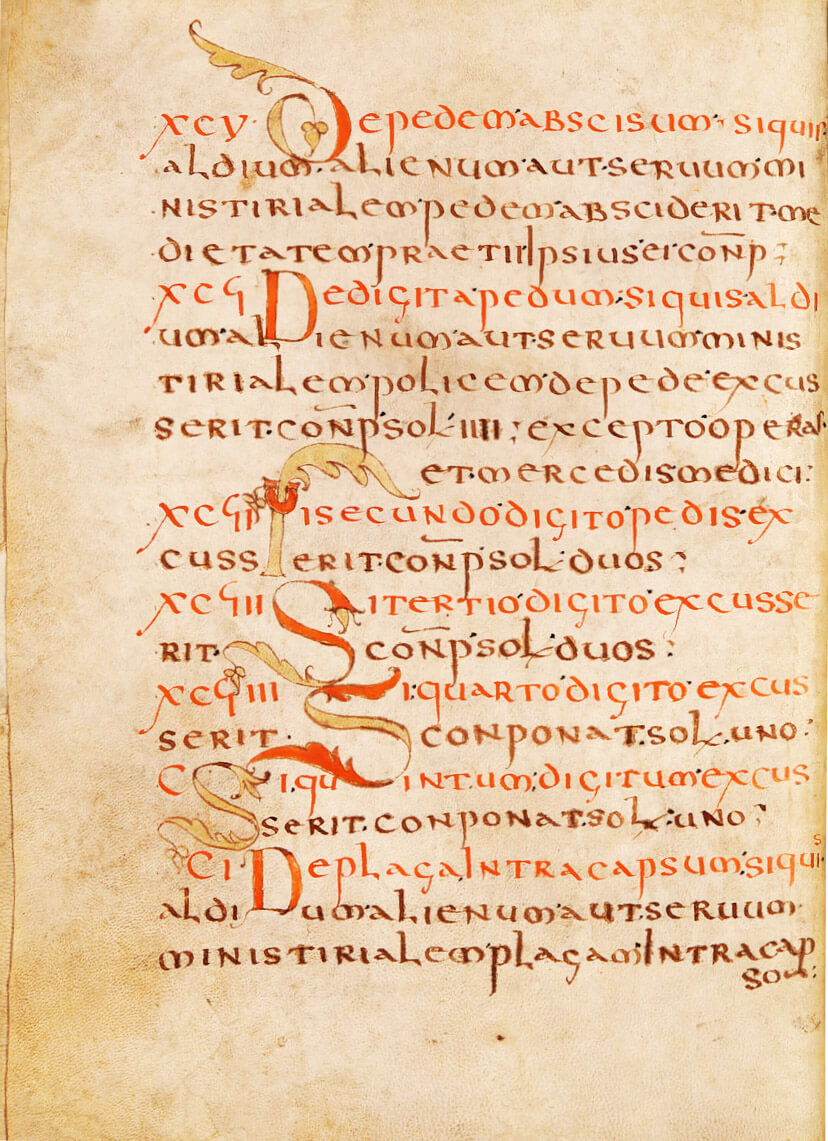 XCV· De pedem· abscisum· siquis
aldium· alienum· aut· seruum· mi
nistirialem· pedem· absciderit· me
dietatem· praetii ipsius· ei conp;
XCVI De digita pedum· siquis· aldi
um· alienum· aut· seruum· minis
tirialem· policem· de pede· excus
serit· conp· sol· IIII; excepto operas·
et· mercedis medici:
XCVII Si secundo· digito· pedis· ex
cusserit· conp· sol· duos;
XCVIII Si tertio· digito· excusse
rit· conp· sol· duos:
XCVIIII Si· quarto· digito· excus
serit· conponat· sol· uno:
C Si· quintum· digitum· excus
serit· conponat· sol· uno;
CI De plaga· intra capsum· siquis·
aldium· alienum· aut· seruum·
ministirialem· plagam· intra cap
som: